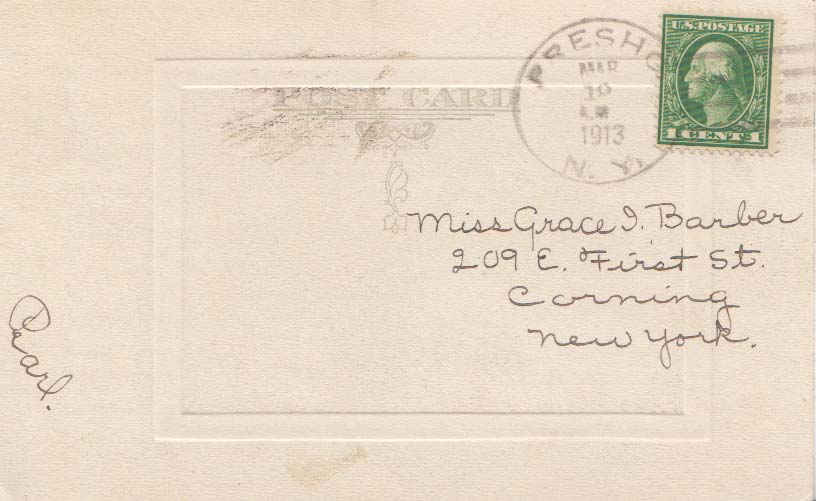 POST CARD
PRESHO
MAR
19
A.M.
1913
N. Y.
U.S. POSTAGE
1 CENT 1
Miss Grace I. Barber
209 E. First St.
Corning
New York.
Pearl.